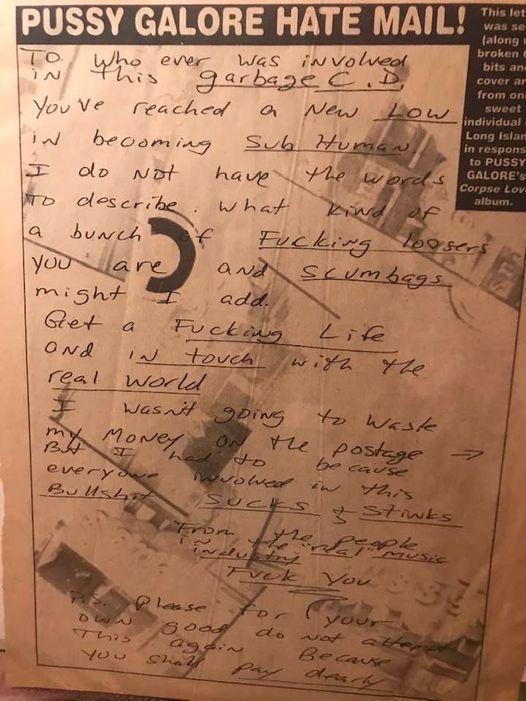 PUSSY GALORE HATE MAIL!
This let
was se
(along w
broken C
bits an
cover ar
from on
sweet
individual
Long Islan
in respons
to PUSSY
GALORE's
Corpse Lov
album.
To who ever was involved
in this garbage C.D.
You've reached a New Low
in becoming Sub Human
I do not have the words
To describe. what kind of
a bunch of Fucking loosers
you are and Scumbags
might I add.
Get a Fucking Life
and in touch with the
real world
I wasn't going to waste
my money on the postage →
But I had to because
everyone involved in this
Bullshit Sucks & Stinks
From the people
in the "real" music
industry
Fuck You
P.S. Please for (your
own good do not attempt
This again Because
you shall pay dearly